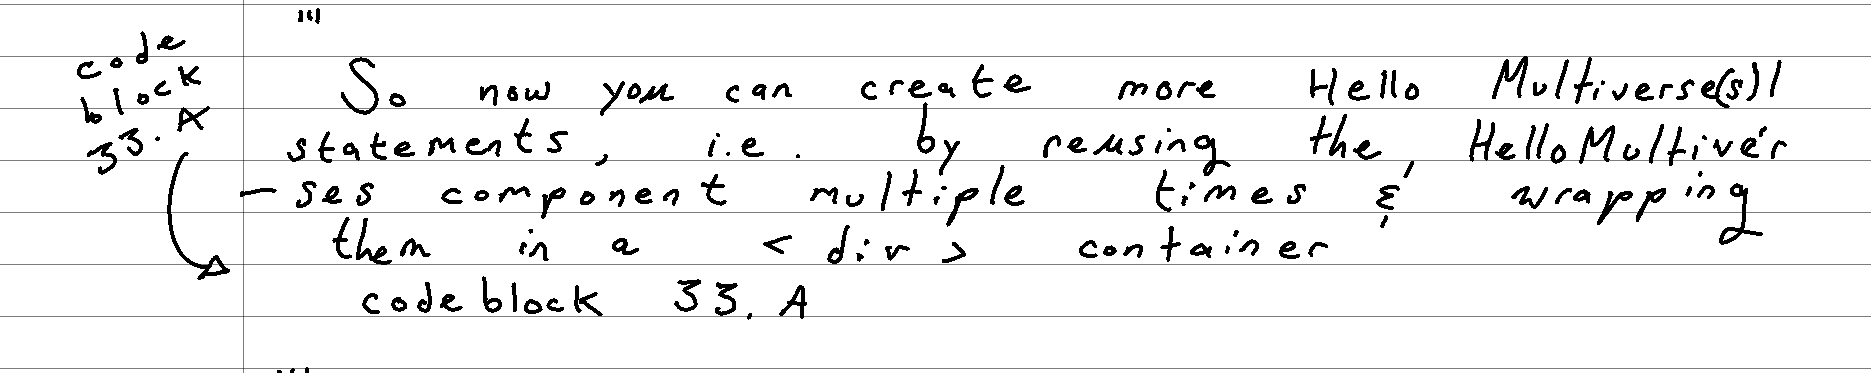 code
block
33. A
So now you can create more Hello Multiverse(s)!
statements, i.e. by reusing the HelloMultiver
-ses component multiple times & wrapping
them in a <div> container
codeblock 33. A